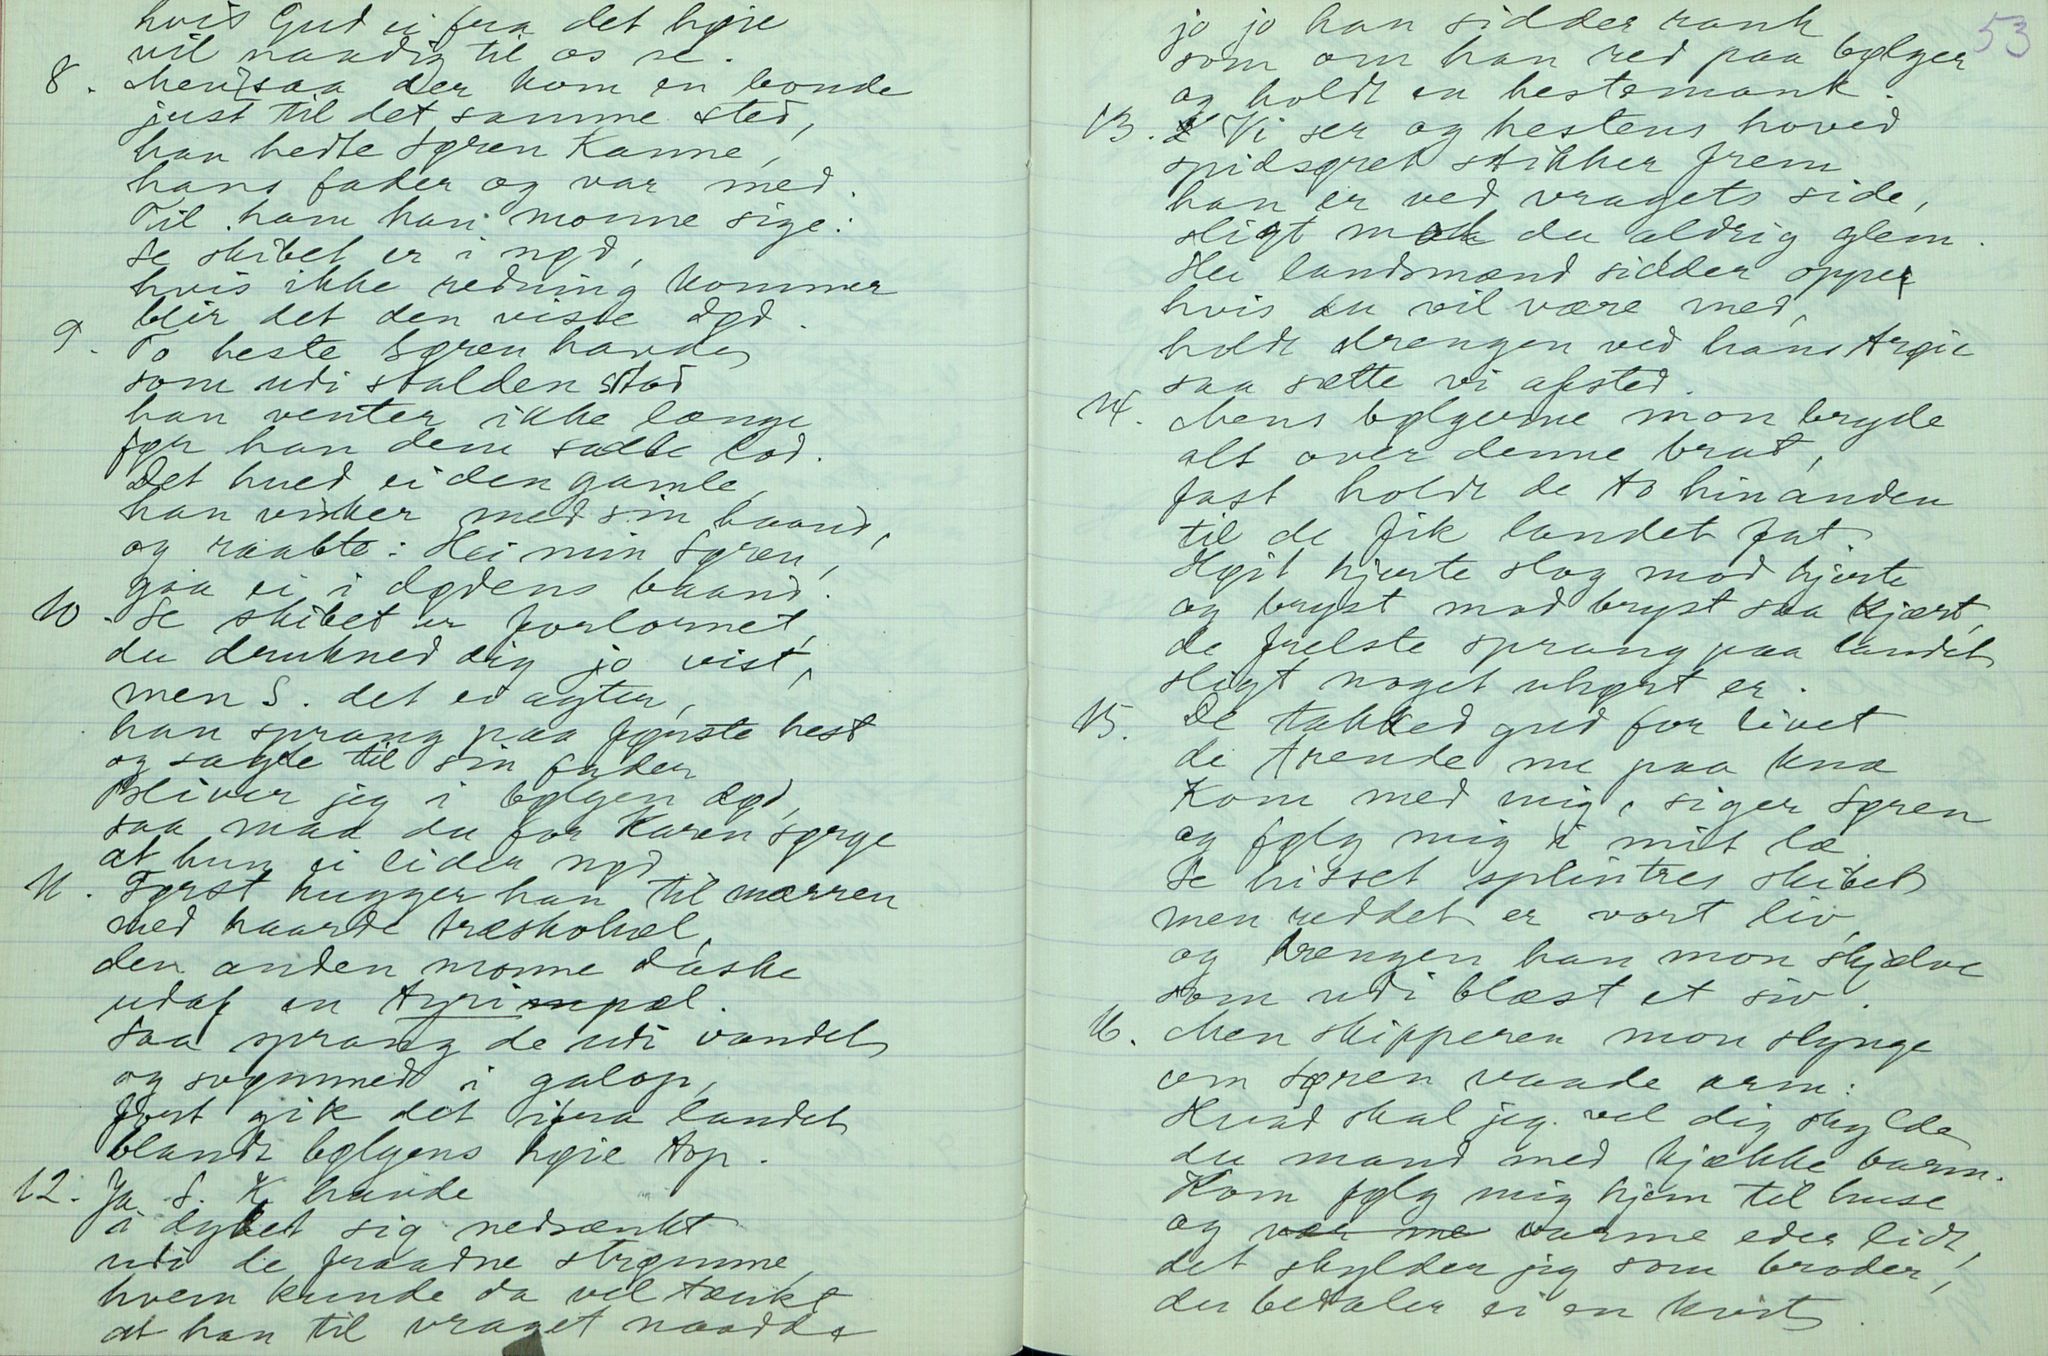 hvis Gud ei fra det høie
vil naadig til os se.
8. Men saa der kom en bonde
just til det samme sted,
han hedte Søren Kanne,
hans fader og var med.
Til ham han monne sige:
Se skibet er i nød,
hvis ikke redning kommer
blir det den visse død.
9. To heste Søren havde,
som udi stalden stod
han venter ikke længe
før han dem sadle lod.
Det hued ei den gamle,
han vinker med sin haand,
og raabte: Hei min Søren,
gaa ei i dødens baand.
10. Se skibet er forlornet,
du drukned dig jo vist,
men S. det ei agter,
han sprang paa første hest
og sagde til sin fader
Bliver jeg i bølgen død,
saa maa du for Karen sørge
at hun ei lider nød.
11. Først hugger han til mærren
med haarde træskohæl,
den anden monne daske
udaf en tyrimpæl.
Saa sprang de udi vandet
og svømmed i galop,
fort gik det ifra landet
blandt bølgens høie top.
12. Ja S. K. havde
i dybet sig nedsænkt
udi de fraadne strømme,
hvem kunde da vel tænkt
at han til vraget naadde
53
jo jo han sidder rank
som om han red paa bølger
og holdt en hestemank.
13. Vi ser og hestens hoved
spidsøret stikker frem
han er ved vragets side,
sligt maa du aldrig glem.
Hei landsmand sidder oppe
hvis du vil være med,
holdt drengen ved hans trøie
saa sætte vi afsted.
14. Mens bølgerne mon bryde
alt over denne brat,
fast holdt de to hinanden
til de fik landet fat
Høit hjerte slog mod hjerte
og bryst mod bryst saa kjært,
de frelste sprang paa landet
sligt noget uhørt er.
15. De takked gud for livet
de trende nu paa knæ
Kom med mig, siger Søren
og følg mig i mit læ.
Se hisset splintres skibet
men reddet er vort liv,
og drengen han mon skjælve
som udi blæst et siv.
16. Men skipperen mon slynge
om Søren vaade arm:
Hvad skal jeg vel dig skylde
du mand med kjække barm.
Kom følg mig hjem til huse
og vær me varme eder lidt,
det skylder jeg som broder,
du betaler ei en hvit.